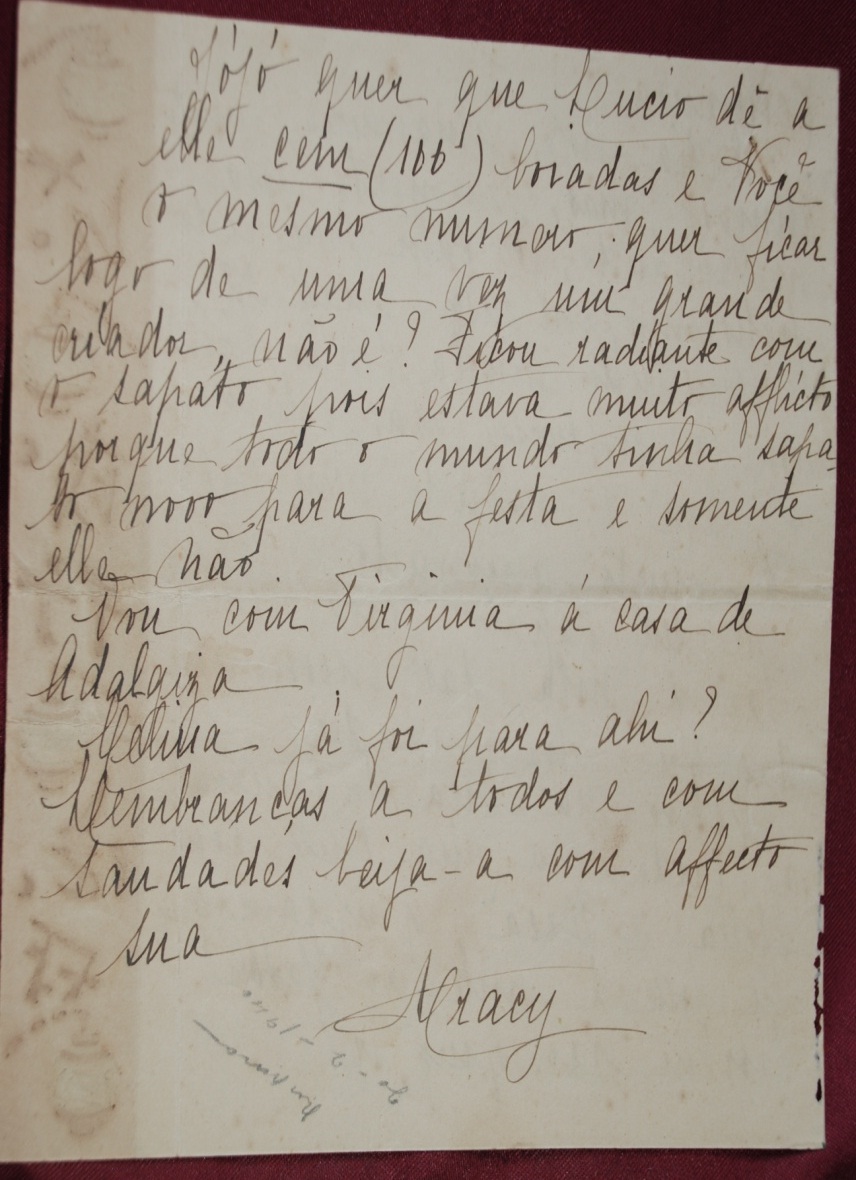 Jójó quer que Lucio dê a
elle cem (100) boiadas e Você
o mesmo numero, quer ficar
logo de uma vez um grande
criador, não é? Ficou radiante com
o sapato pois estava muito afflicto
porque todo o mundo tinha sapa-
to novo para a festa e somente
elle não.
Vou com Virginia á casa de
Adalgiza.
já foi para ahi?
Lembranças a todos e com
saudades beija-a com affecto
sua
Aracy